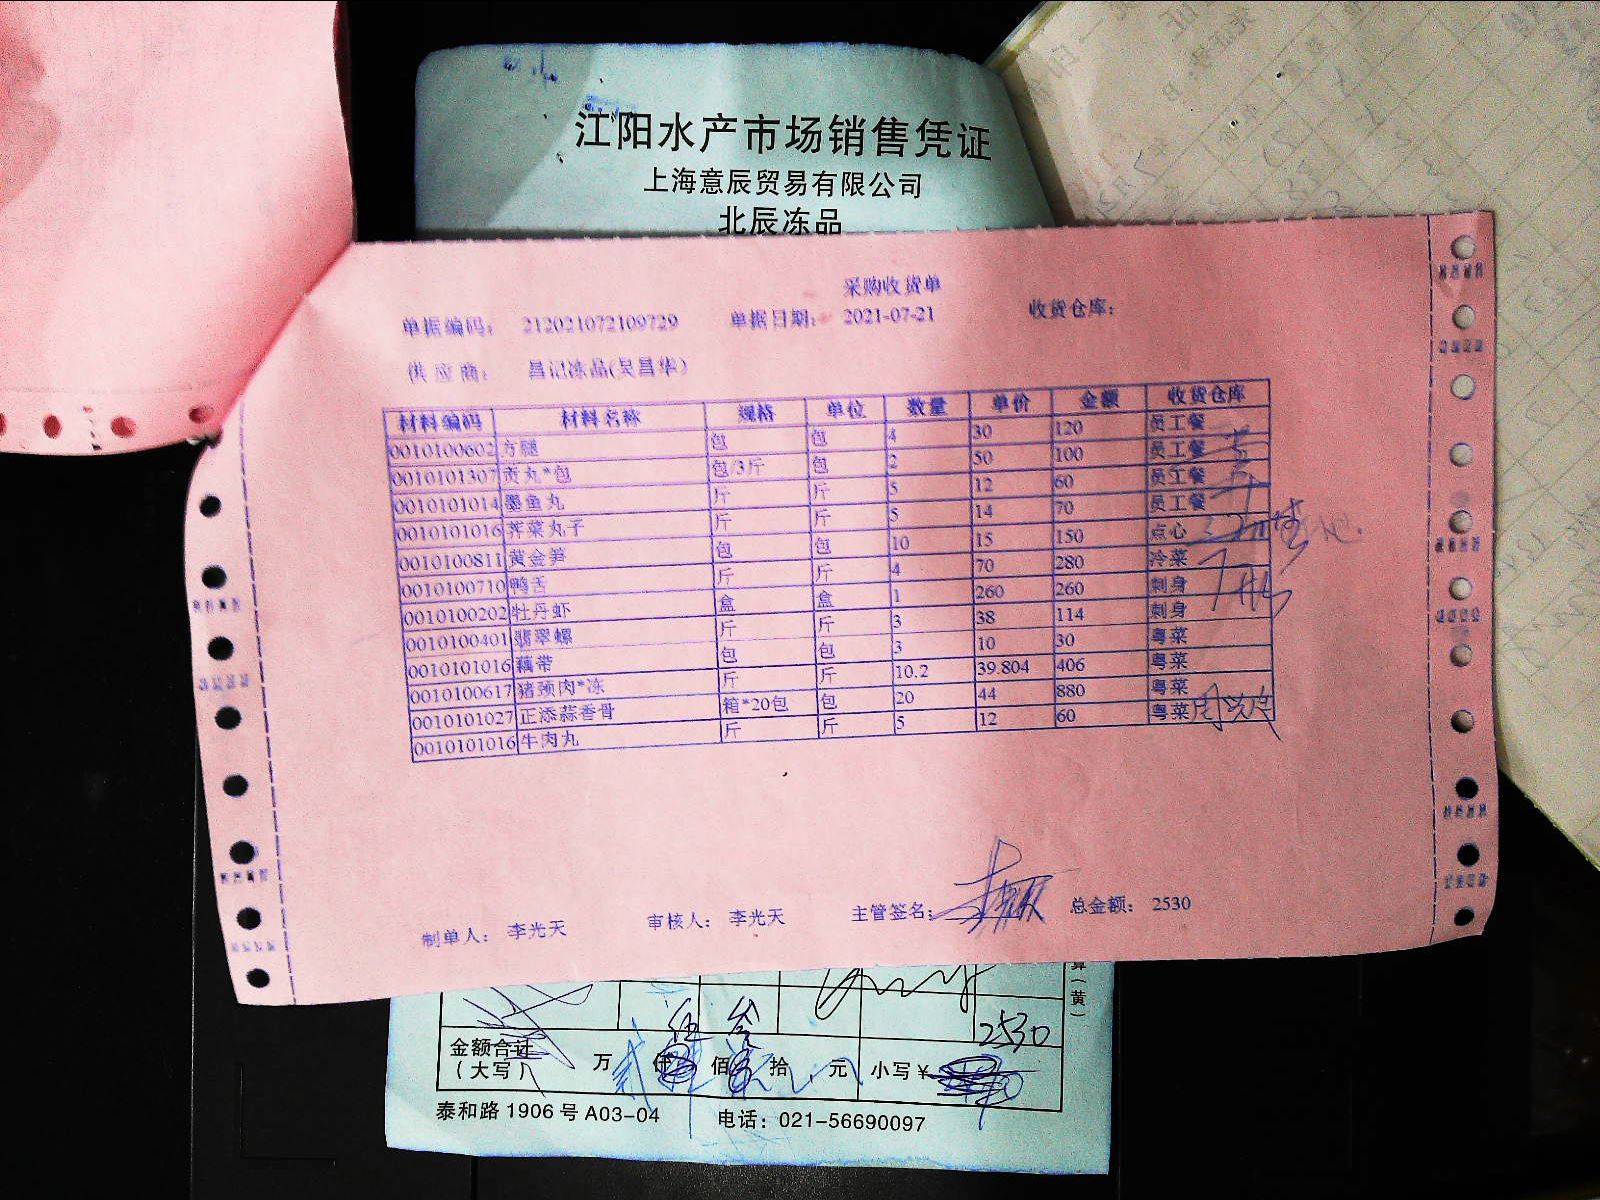 江阳水产市场销售凭证
上海意辰贸易有限公司
北辰冻品
采购收货单
单据编码: 212021072109729 单据日期: 2021-07-21 收货仓库:
供应商: 昌记冻品(吴昌华)
材料编码 材料名称 规格 单位 数量 单价 金额 收货仓库
0010100602 方腿 包 包 4 30 120 员工餐
0010101307 贡丸*包 包/3斤 包 2 50 100 员工餐
0010101014 墨鱼丸 斤 斤 5 12 60 员工餐
0010101016 荠菜丸子 斤 斤 5 14 70 员工餐
0010100811 黄金笋 包 包 10 15 150 点心
0010100710 鸭舌 斤 斤 4 70 280 冷菜
0010100202 牡丹虾 盒 盒 1 260 260 刺身
0010100401 翡翠螺 斤 斤 3 38 114 刺身
0010101016 藕带 包 包 3 10 30 粤菜
0010100617 猪颈肉*冻 斤 斤 10.2 39.804 406 粤菜
0010101027 正添蒜香骨 箱*20包 包 20 44 880 粤菜
0010101016 牛肉丸 斤 斤 5 12 60 粤菜
制单人: 李光天 审核人: 李光天 主管签名: 总金额: 2530
(黄)
2530
伍 叁
金额合计 万 仟 佰 拾 元 小写¥
(大写)
泰和路1906号A03-04 电话: 021-56690097